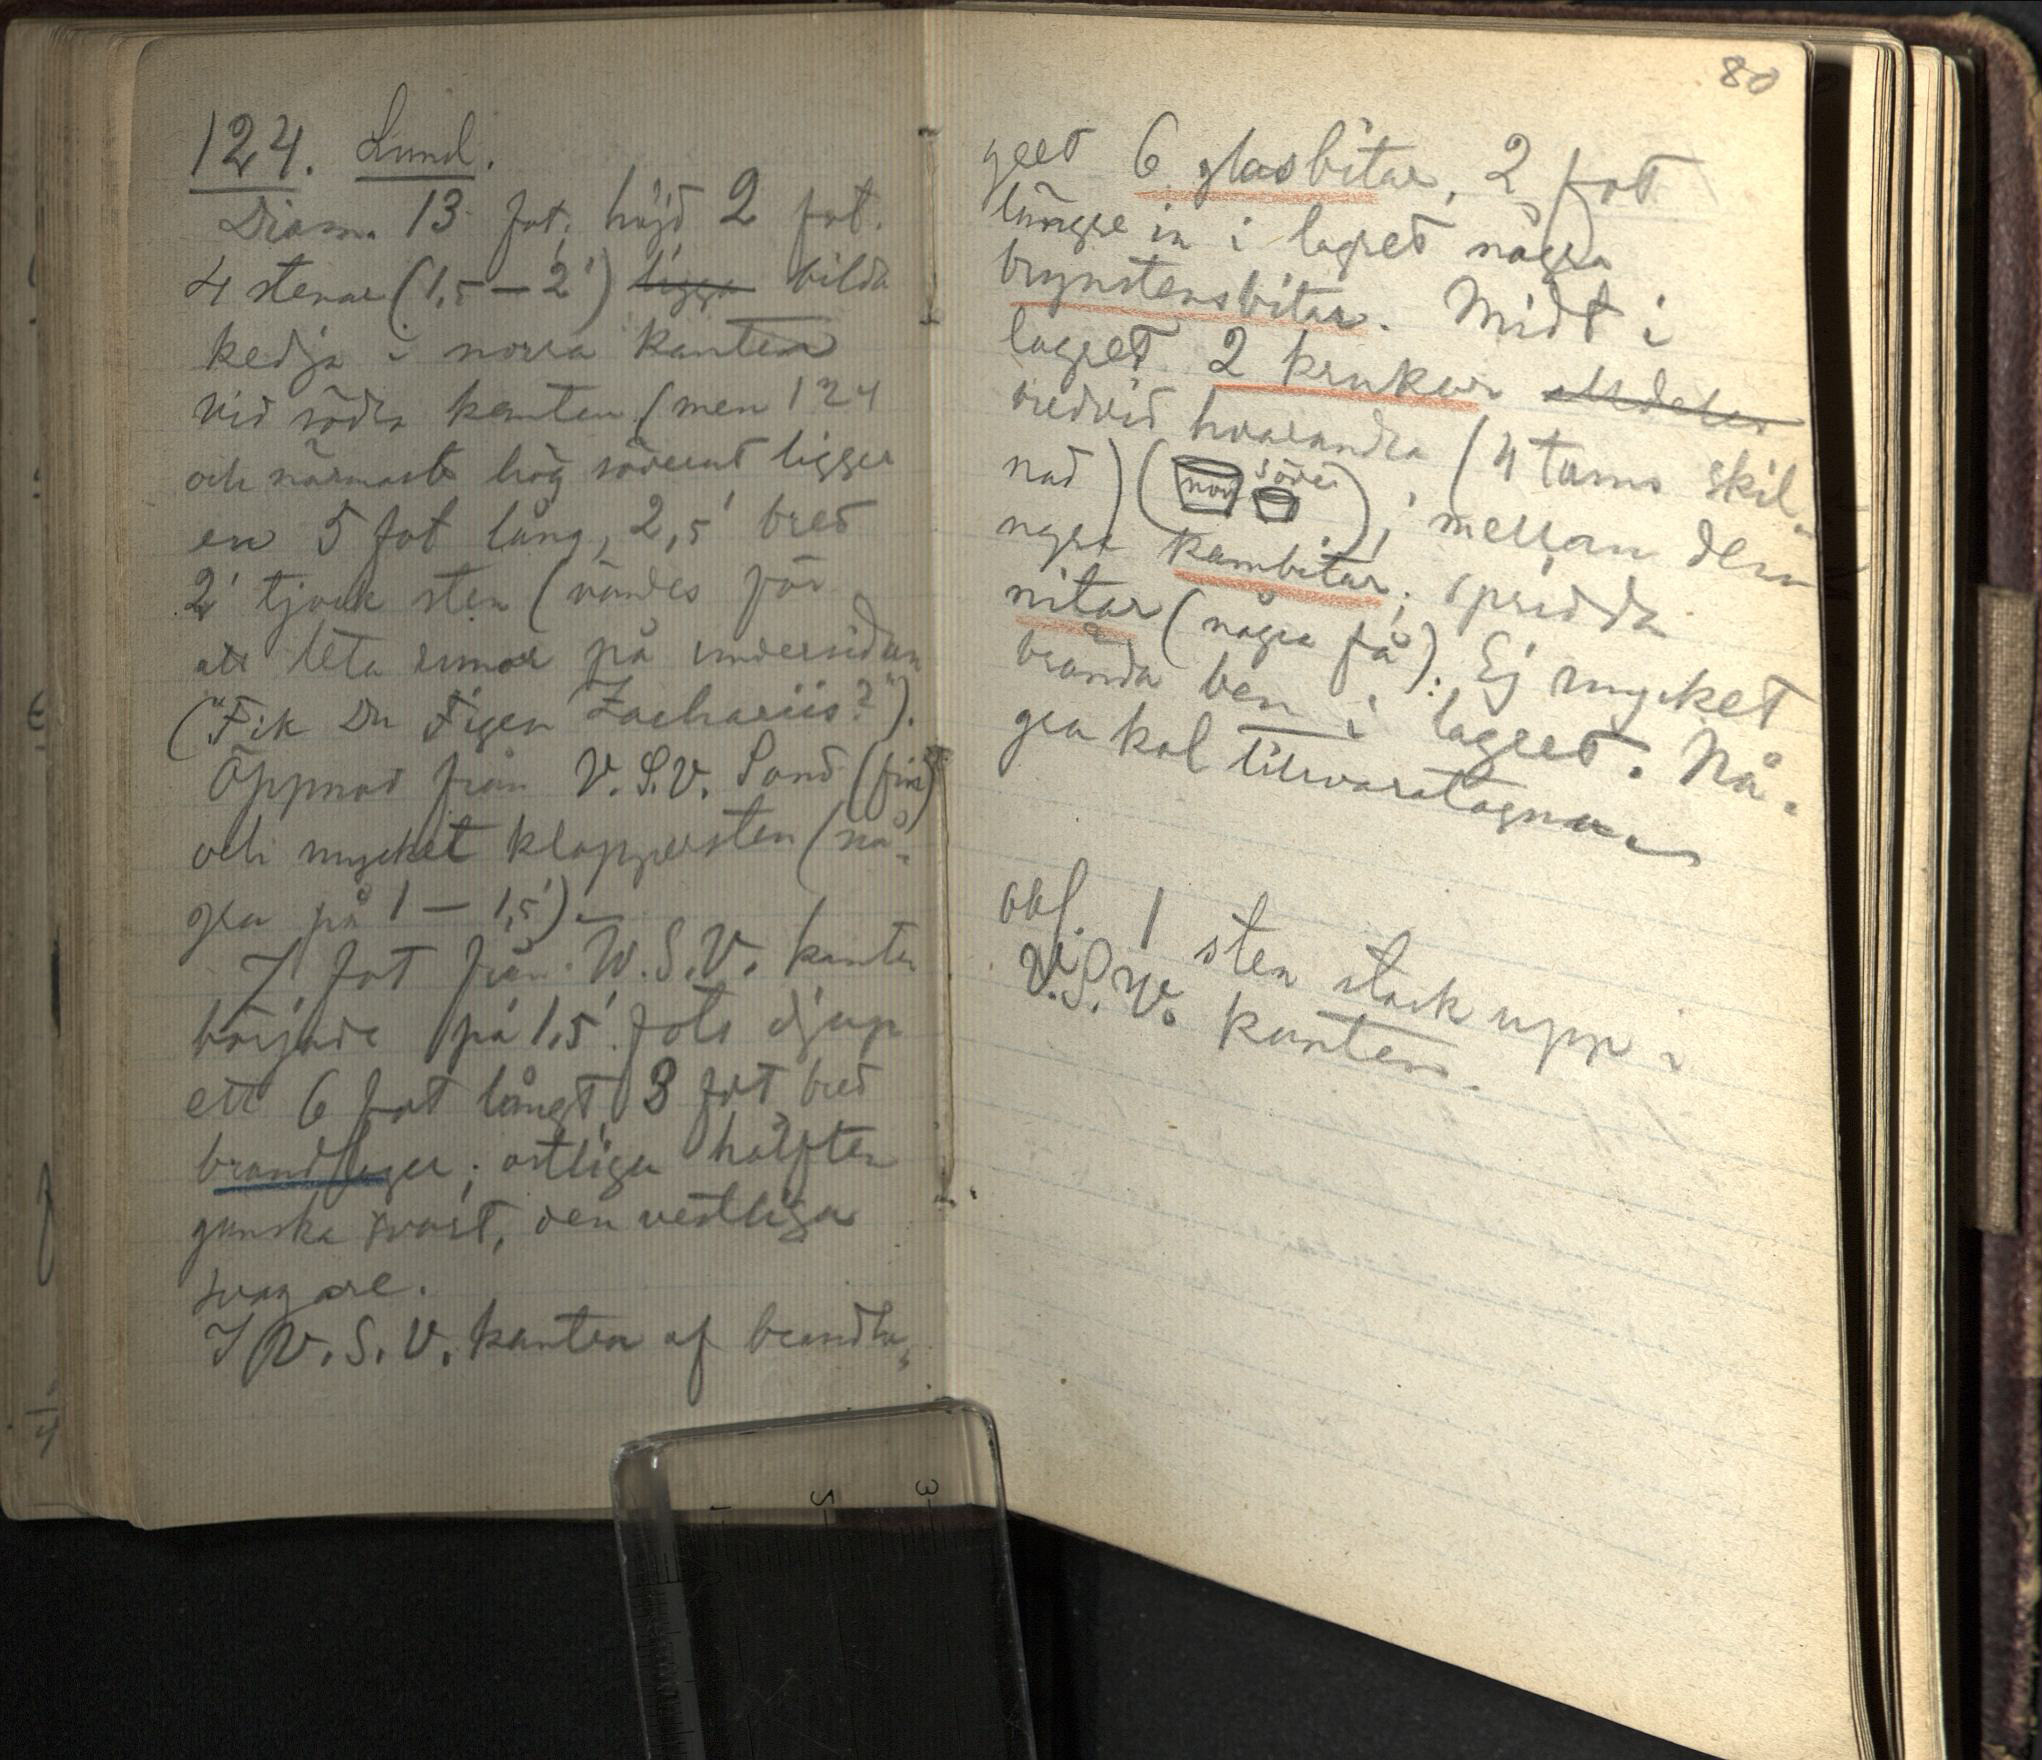 124. Lund.
Diam. 13 fot; höjd 2 fot.
4 stenar (1,5 – 2') ligga bilda
kedja i norra kanten
vid södra kanten (men 124
och närmaste hög söderut ligger
en 5 fot lång, 2,5' bred
2' tjock sten (vändes för
att leta runor på undersidan
("Fik Du Figen Zachariis?").
Öppnad från V.S.V. Sand (fin)
och mycket klappersten (nå-
gra på 1 – 1,5').
7 fot från W.S.V. kanten
började på 1,5 fots djup
ett 6 fot långt, 3 fot bred
brandlager; östliga hälften
ganska svart, den vestliga
svagare.
I V.S.V. kanten af brandla-
80
gret 6 glasbitar, 2 fot
längre in i lagret några
brynstensbitar. Midt i
lagret 2 krukor alldeles
bredvid hvarandra (4 tums skil-
nad) (norr söder); mellan dem
ngra kambitar; spridda
nitar (några få). Ej mycket
brända ben i lagret. Nå-
gra kol tillvaratagna
obs. 1 sten stack upp i
V.S.V. kanten.